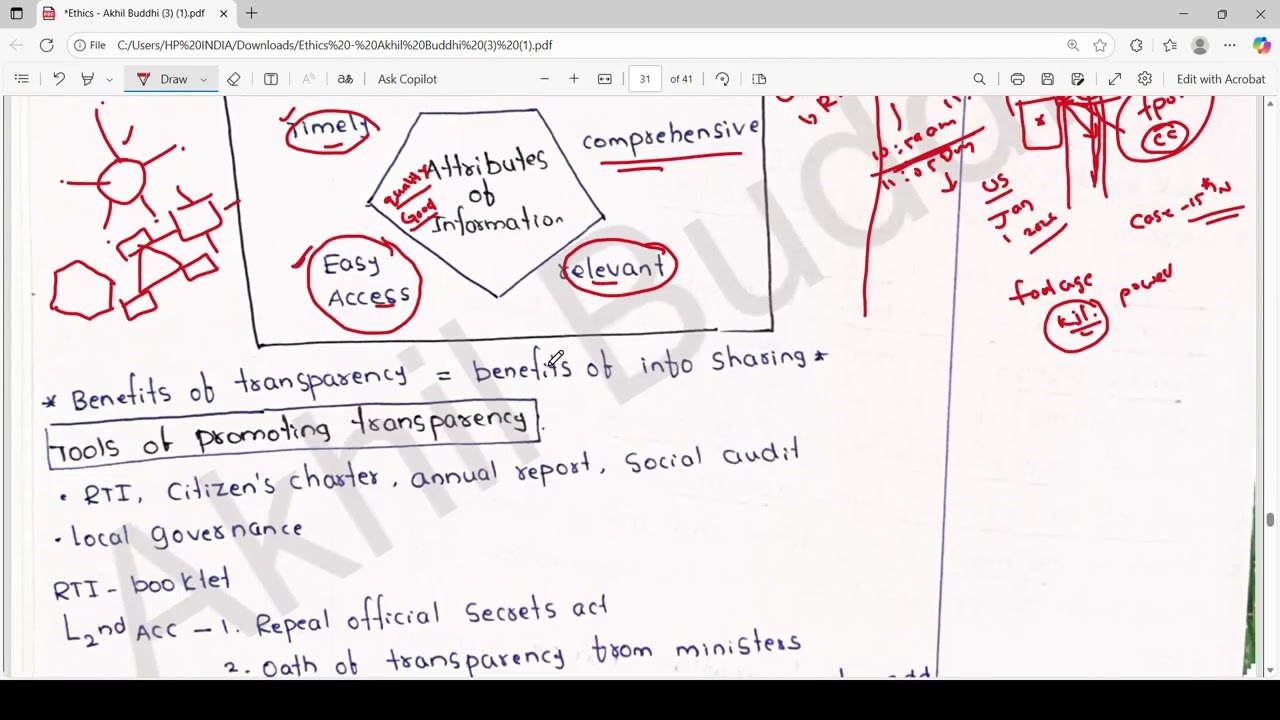 *Ethics - Akhil Buddhi (3) (1).pdf
File C:/Users/HP%20INDIA/Downloads/Ethics%20-%20Akhil%20Buddhi%20(3)%20(1).pdf
Draw Ask Copilot 31 of 41 Edit with Acrobat
Timely
comprehensive
Quality
Good
Attributes
of
Information
Easy
Access
relevant
US
Jan
2025
Case - 15th N
footage
power
* Benefits of transparency = benefits of info sharing *
Tools of promoting transparency.
• RTI, Citizen's charter, annual report, Social audit
• Local governance
RTI - booklet
2nd ACC - 1. Repeal official Secrets act
2. Oath of transparency from ministers
Akhil Buddhi